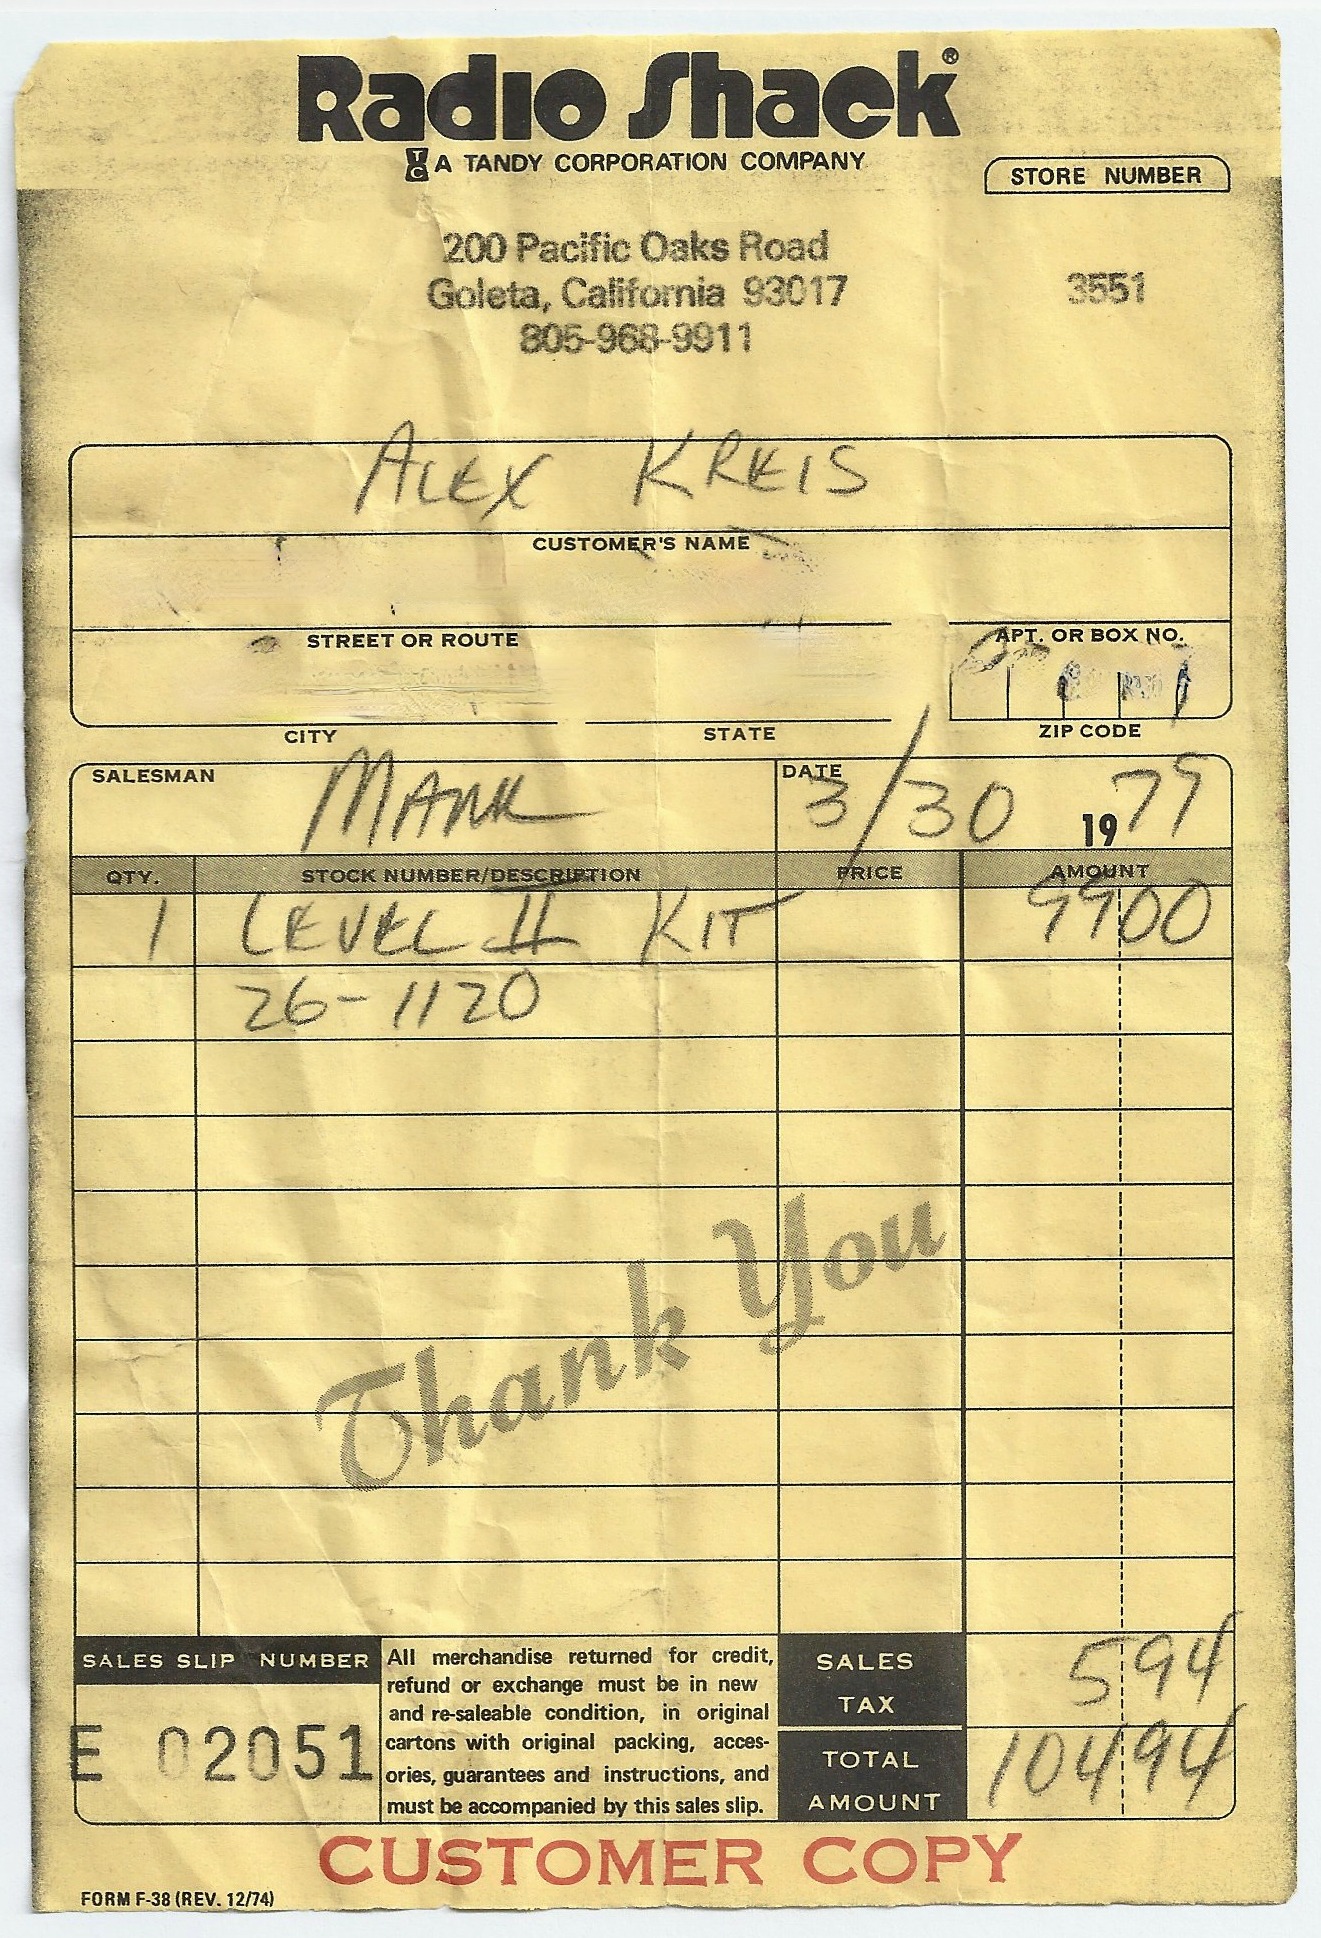 Radio Shack®
TC A TANDY CORPORATION COMPANY
STORE NUMBER
200 Pacific Oaks Road
Goleta, California 93017
3551
805-968-9911
ALEX KREIS
CUSTOMER'S NAME
STREET OR ROUTE
APT. OR BOX NO.
CITY
STATE
ZIP CODE
SALESMAN
DATE
3/30 1979
QTY. STOCK NUMBER/DESCRIPTION PRICE AMOUNT
1 LEVEL II KIT 9900
26-1120
Thank You
SALES SLIP NUMBER
E 02051
All merchandise returned for credit,
refund or exchange must be in new
and re-saleable condition, in original
cartons with original packing, acces-
ories, guarantees and instructions, and
must be accompanied by this sales slip.
SALES
TAX
594
TOTAL
AMOUNT
10494
CUSTOMER COPY
FORM F-38 (REV. 12/74)